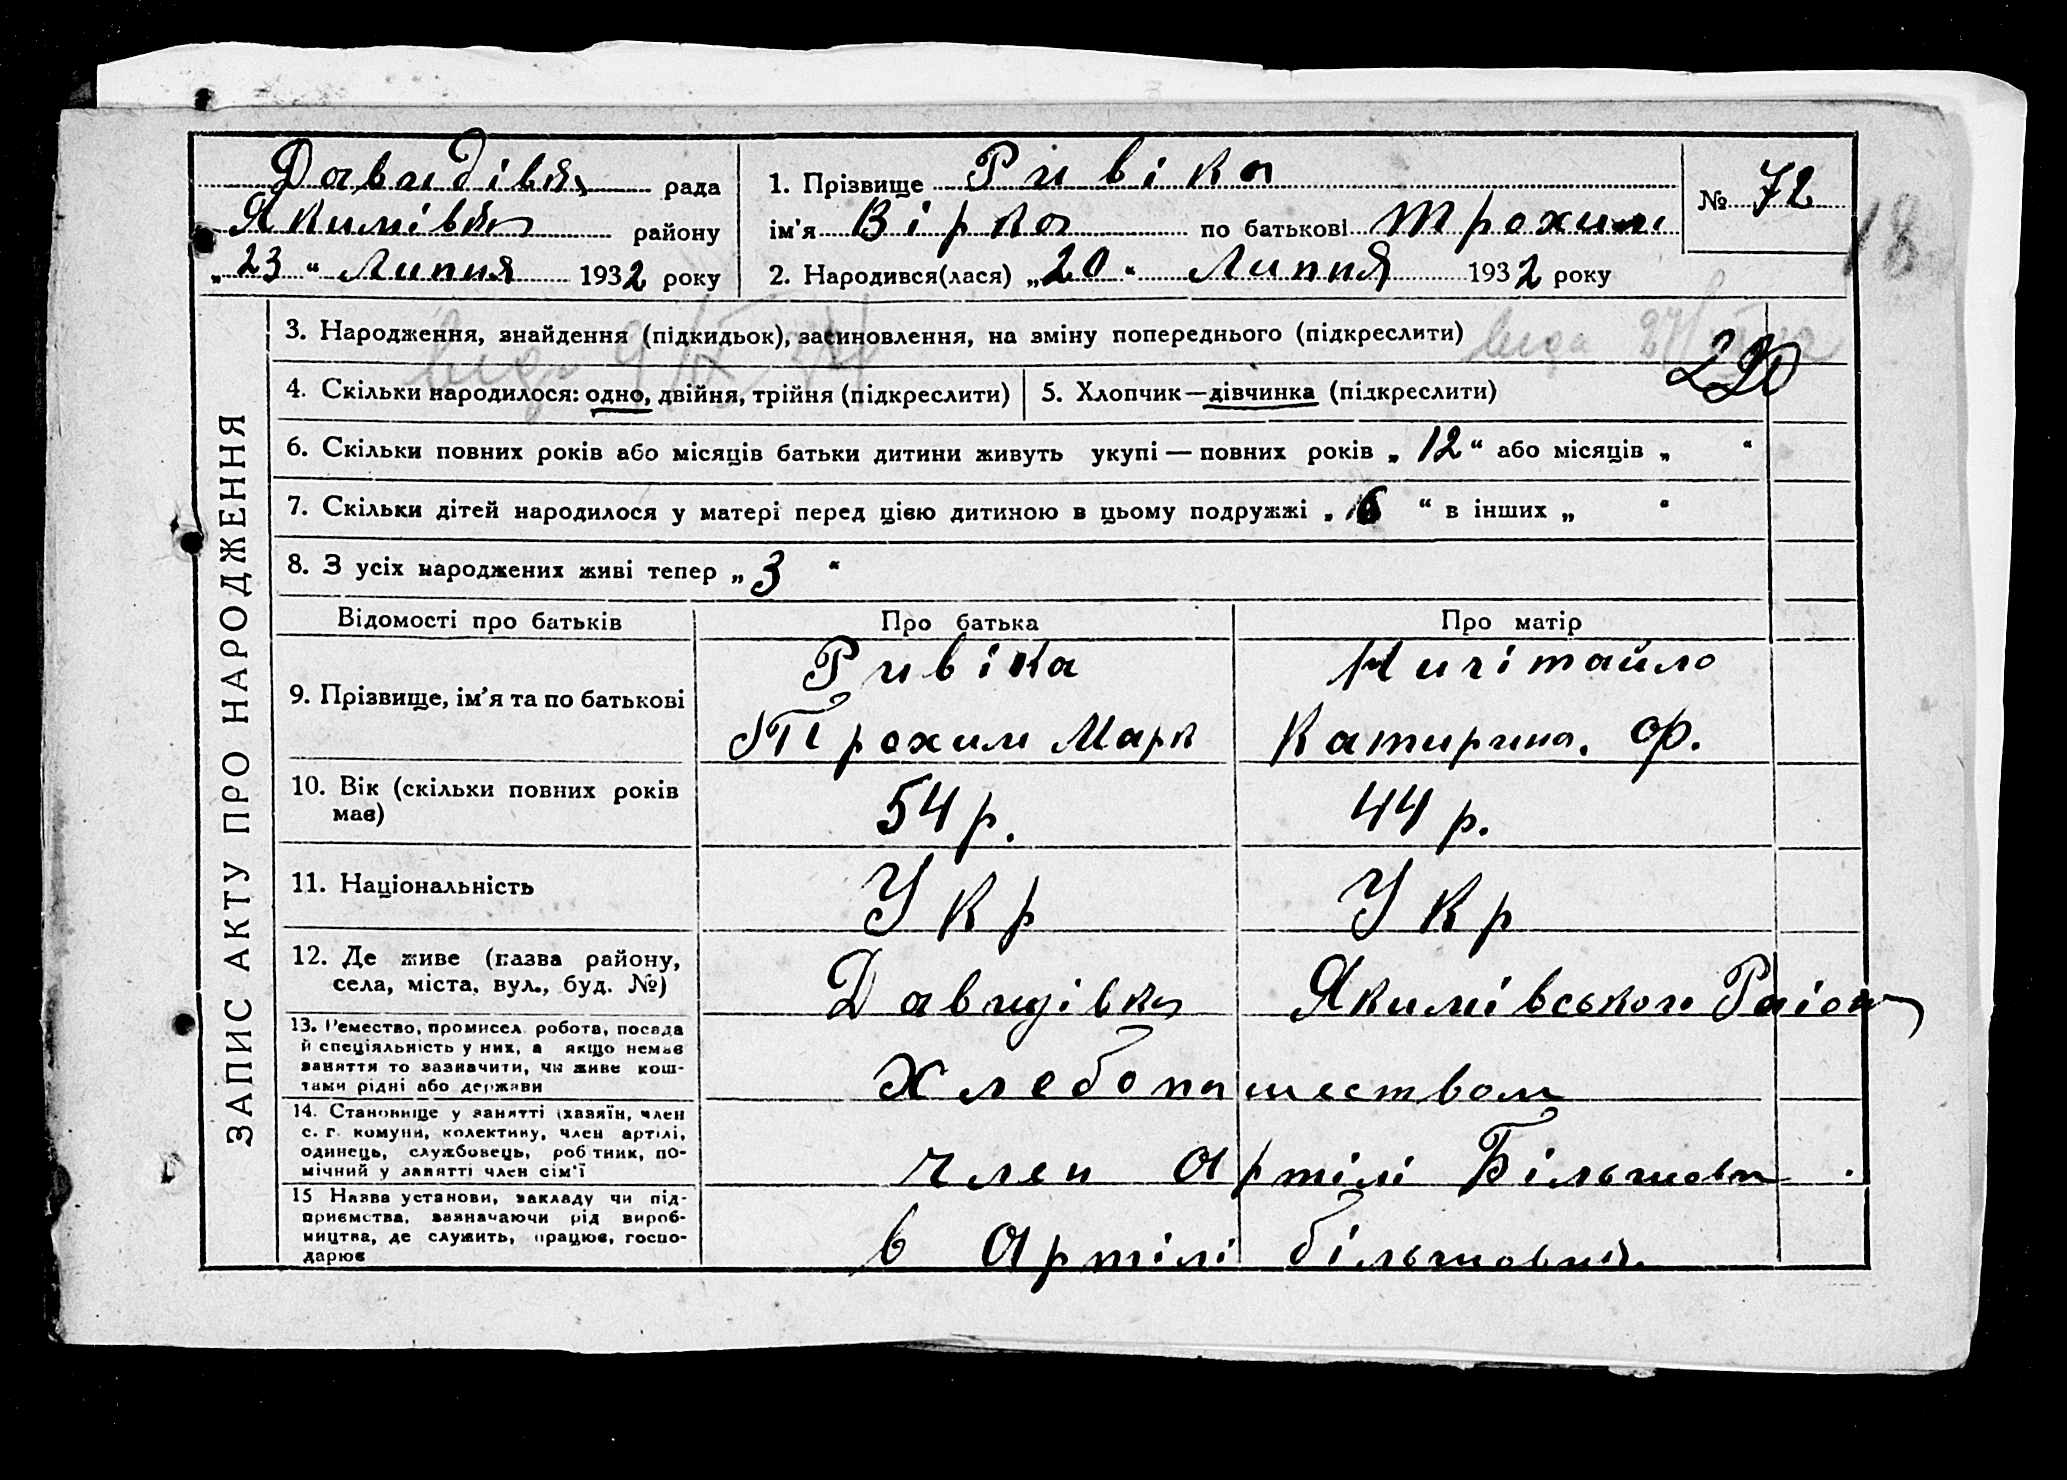 Давидівка рада
Якимівка району
„23“ Липня 1932 року
1. Прізвище Ривіка
ім'я Вірка по батькові Трохим
2. Народився(лася) „20“ Липня 1932 року
№ 72
18
ЗАПИС АКТУ ПРО НАРОДЖЕННЯ
3. Народження, знайдення (підкидьок), засиновлення, на зміну попереднього (підкреслити)
4. Скільки народилося: одно, двійня, трійня (підкреслити)
5. Хлопчик—дівчинка (підкреслити)
6. Скільки повних років або місяців батьки дитини живуть укупі — повних років „12“ або місяців „ “
7. Скільки дітей народилося у матері перед цією дитиною в цьому подружжі „6“ в інших „ “
8. З усіх народжених живі тепер „3“
Відомості про батьків
Про батька
Про матір
9. Прізвище, ім'я та по батькові
Ривіка
Трохим Марк
Ничітайло
Катирина. Ф.
10. Вік (скільки повних років
має)
54 р.
44 р.
11. Національність
Укр
Укр
12. Де живе (назва району,
села, міста, вул., буд. №)
Давидівка Якимівського Раіон
13. Ремество, промисел, робота, посада
й спеціяльність у них, а якщо немає
заняття то зазначити, чи живе кош-
тами рідні або держави
Хлебопашеством
14. Становище у занятті (хазяїн, член
с. г. комуни, колективу, член артілі,
одинець, службовець, робітник, по-
мічний у занятті член сім'ї
член Артілі Більшови
15 Назва установи, закладу чи під-
приємства, зазначаючи рід вироб-
ництва, де служить, працює, госпо-
дарює
в Артілі більшовик.